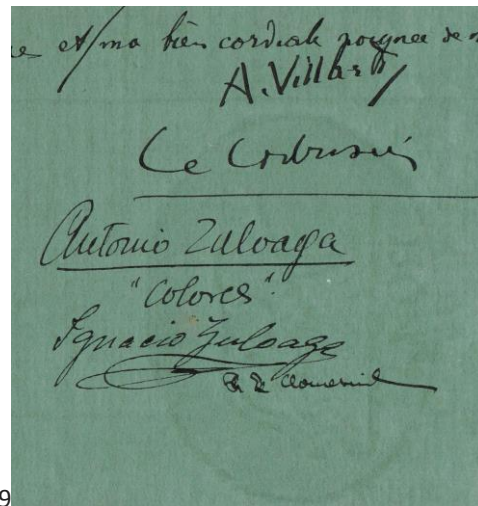 et ma bien cordiale poignée de
A. Villard
Le Corbusier
Antonio Zuloaga
"Colores".
Ignacio Zuloaga
9